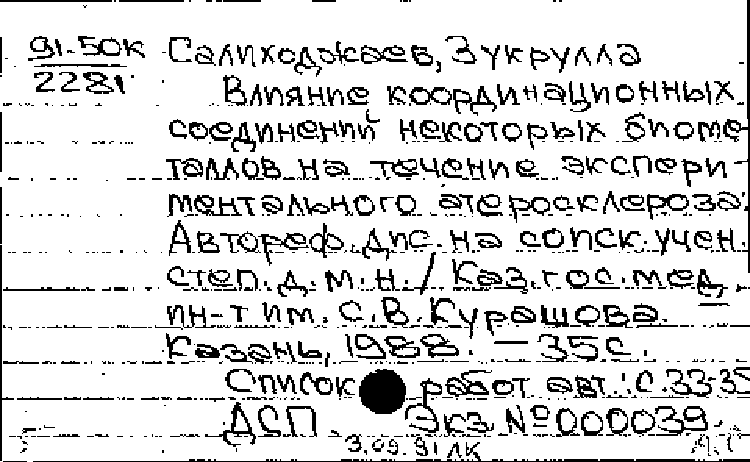 91-50К Салиходжаев, Зукрулла
2281 Влияние координационных
соединений некоторых биоме-
таллов на течение экспери-
ментального атеросклероза:
Автореф. дис. на соиск. учен.
степ. д.м.н. / Каз. гос. мед.
ин-т им. С.В. Курашова.
Казань, 1988. - 35 с.
Список работ авт.: с. 33-35
ДСП. Экз. № 000039.
3.09.91 ЛК